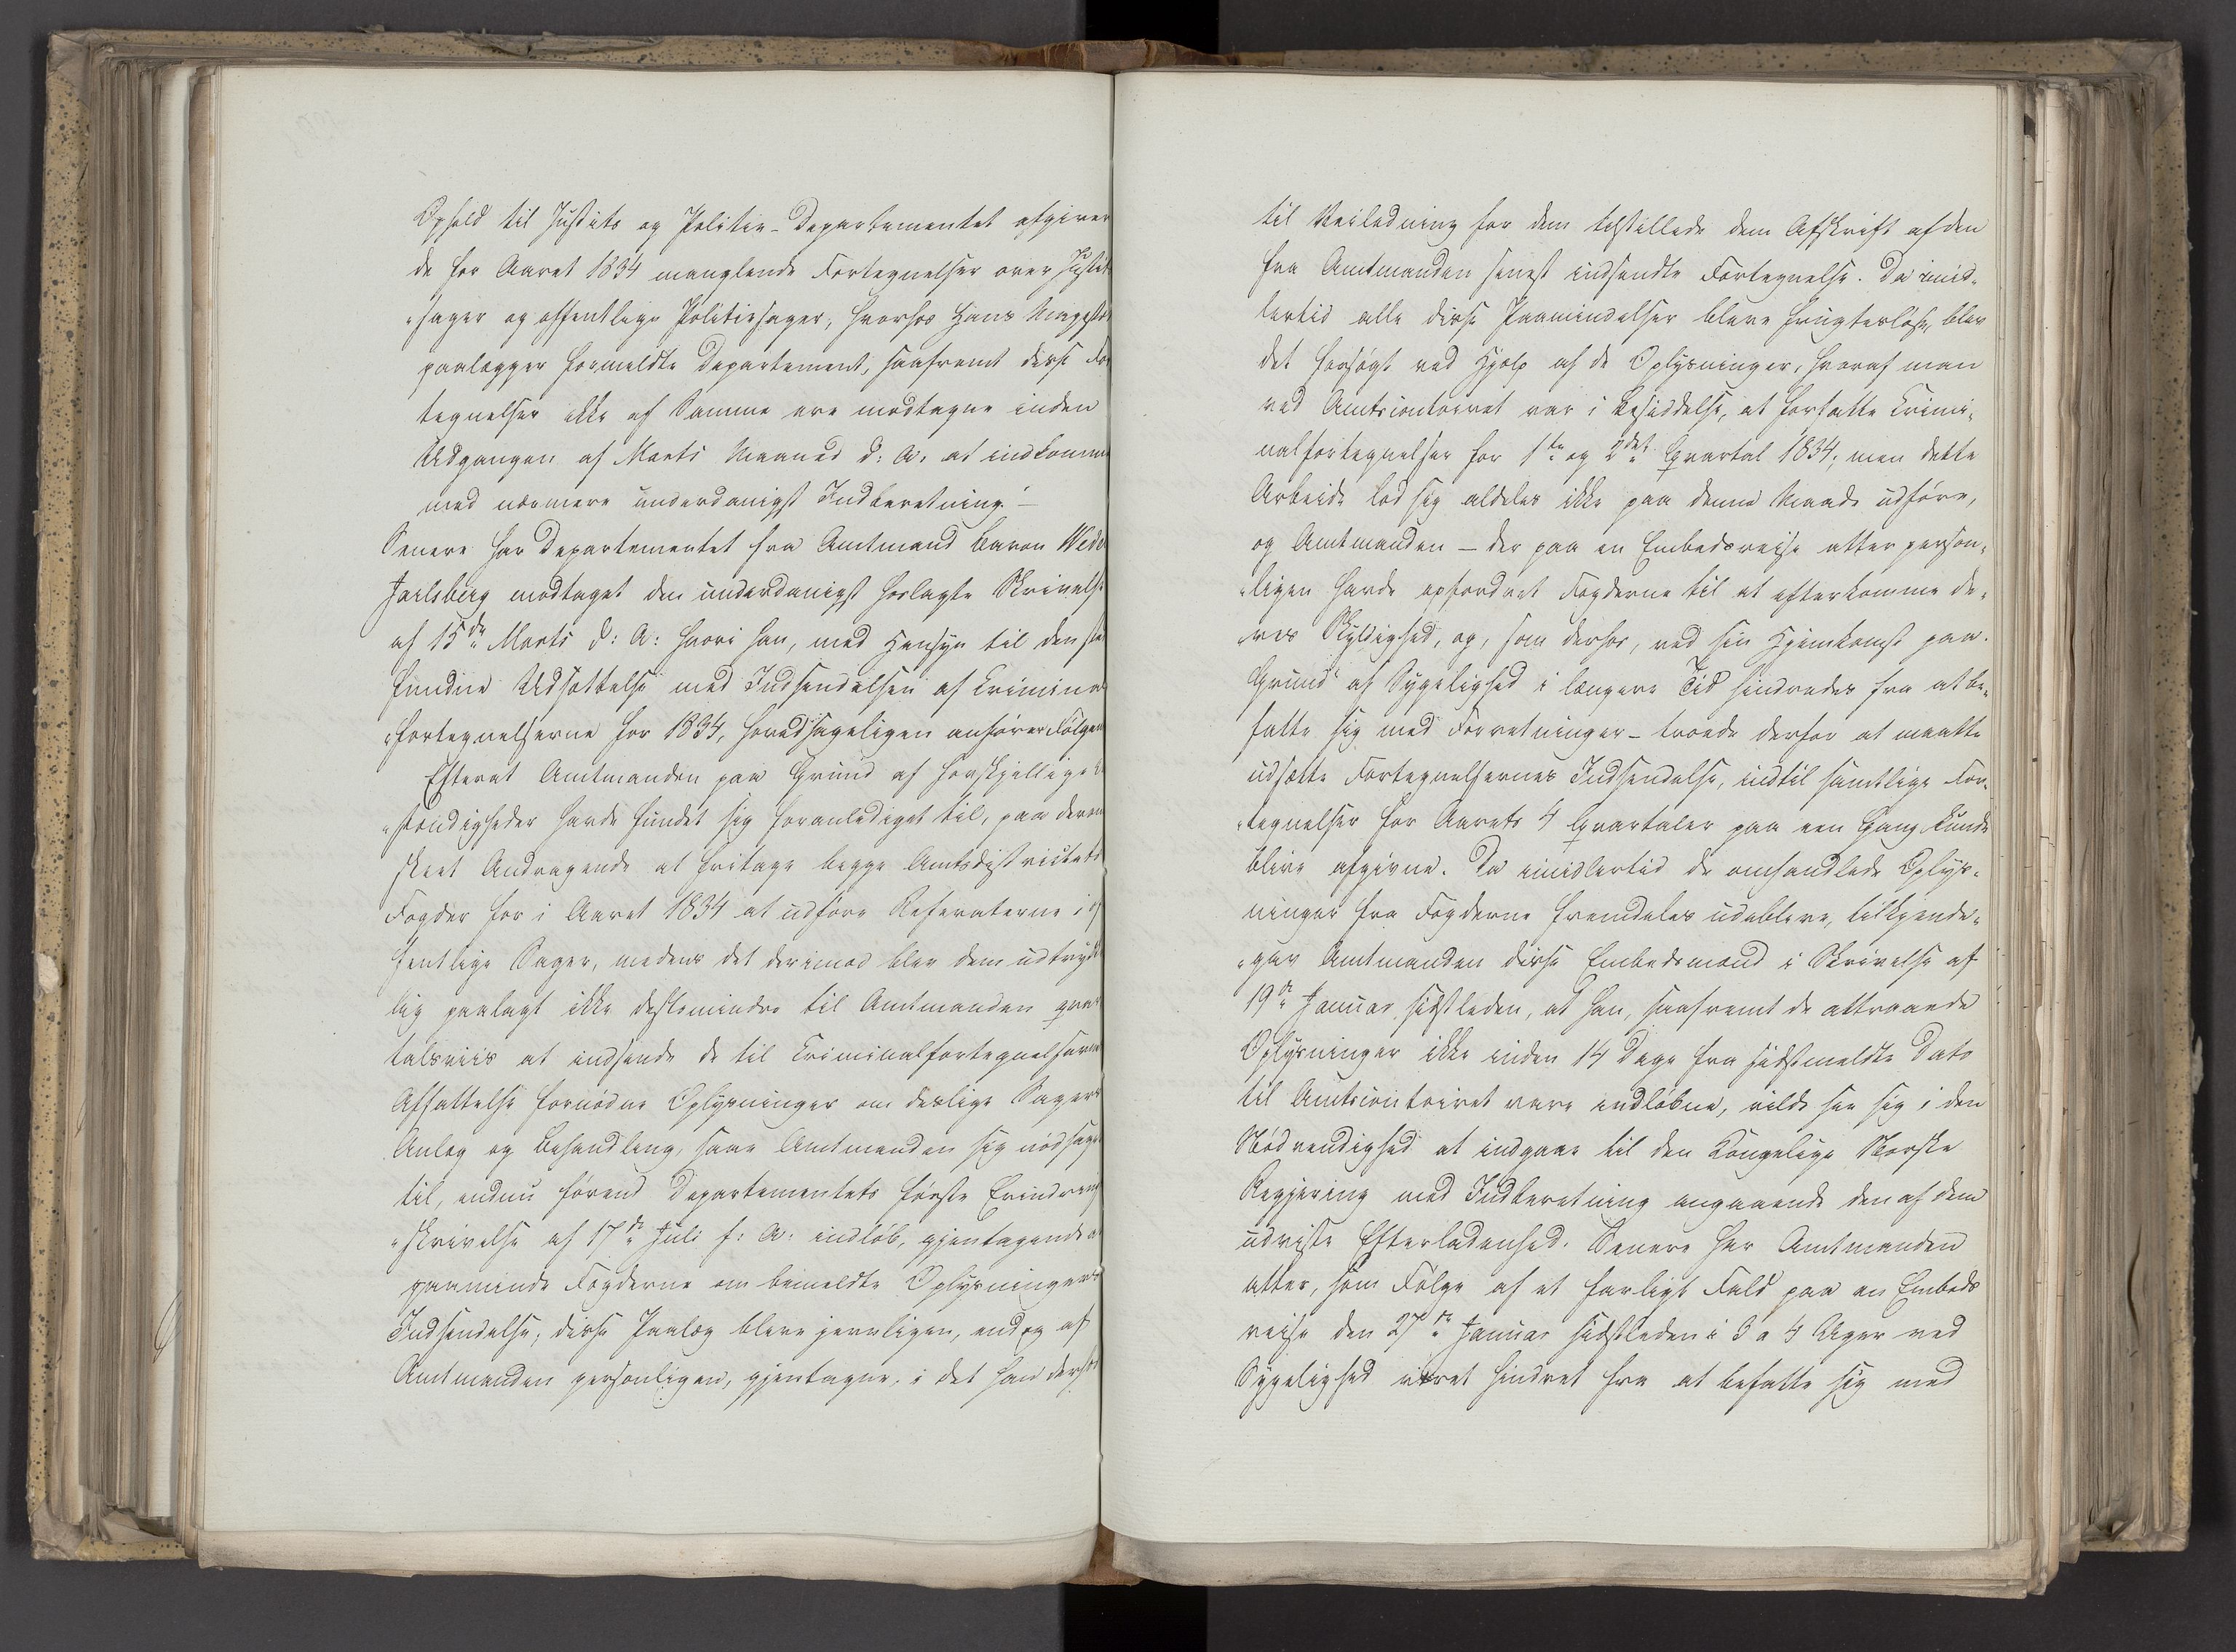 Ophold til Justits og Politie-Departementet afgiver
de for Aaret 1834 manglende Fortegnelser over Justits
„sager og offentlige Politiesager, hvorhos Hans Majestæt
paalægger formeldte Departement, saafremt disse For
tegnelser ikke af Samme ere modtagne inden
Udgangen af Marts Maaned d: A. at indkomme
med nærmere underdanigst Indberetning.—
Senere har Departementet fra Amtmand Baron Wedel
Jarlsberg modtaget den underdanigst hoslagte Skrivelse
af 15de Marts d: A: hvori han, med Hensyn til den sted
fundne Udsættelse med Indsendelsen af Criminal
„fortegnelserne for 1834, hovedsageligen anfører Følgende
Efterat Amtmanden paa Grund af forskjellige Om
„stændigheder havde fundet sig foranlediget til, paa derom
skeet Andragende at fritage begge Amtsdistrictets
Fogder for i Aaret 1834 at udføre Referaterne i of
fentlige Sager, medens det derimod blev dem udtrykke
lig paalagt ikke destomindre til Amtmanden qvar
talsviis at indsende de til Criminalfortegnelserne
Affattelse fornødne Oplysninger om deslige Sagers
Anlæg og Behandling, saae Amtmanden sig nødsaget
til, endnu førend Departementets første Erindrings
„skrivelse af 17de Juli f: A: indløb, gjentagende at
paaminde Fogderne om bemeldte Oplysningers
Indsendelse; disse Paalæg bleve jevnligen, endog af
Amtmanden personligen, gjentagne, i det han derhos
til Veiledning for dem tilstillede dem Afskrift af den
fra Amtmanden senest indsendte Fortegnelse. Da imid-
lertid alle disse Paamindelser bleve frugtesløse, blev
det forsøgt ved Hjelp af de Oplysninger, hvoraf man
ved Amtscontoiret var i Besiddelse, at forfatte Crimi-
nalfortegnelser for 1ste og 2det Qvartal 1834; men dette
Arbeide lod sig aldeles ikke paa denne Maade udføre,
og Amtmanden – der paa en Embedsreise atter person-
„ligen havde opfordret Fogderne til at efterkomme de-
„res Skyldighed, og, som derhos, ved sin Hjemkomst paa
Grund af Sygelighed i længere Tid hindredes fra at be-
fatte sig med Forretninger – troede derfor at maatte
udsætte Fortegnelsernes Indsendelse, indtil samtlige For-
„tegnelser for Aarets 4 Qvartaler paa een Gang kunde
blive afgivne. Da imidlertid de omhandlede Oplys-
ninger fra Fogderne fremdeles udebleve, tilkjende-
„gav Amtmanden disse Embedsmænd i Skrivelse af
19de Januar sidstleden, at han, saafremt de attraaede
Oplysninger ikke inden 14 Dage fra sidstmeldte Dato
til Amtscontoiret vare indløbne, vilde see sig i den
Nødvendighed at indgaae til den Kongelige Norske
Regjering med Indberetning angaaende den af dem
udviste Efterladenhed. Senere har Amtmanden
atter, som Følge af et farligt Fald paa en Embeds
reise den 27de Januar sidstleden i 3 a 4 Uger ved
Sygelighed været hindret fra at befatte sig med